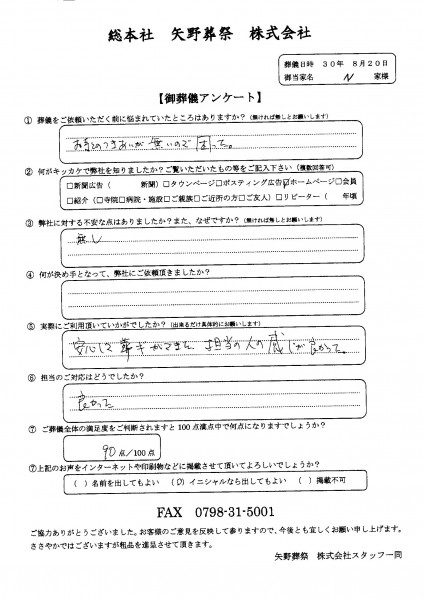 総本社 矢野葬祭 株式会社
葬儀日時 30年 8月20日
御当家名 N 家様
【御葬儀アンケート】
① 葬儀をご依頼いただく前に悩まれていたところはありますか？（無ければ無しとお願いします）
お寺とのつきあいが無いので困って。
② 何がキッカケで弊社を知りましたか？ご覧いただいたもの等をご記入下さい（複数回答可）
□新聞広告（ 新聞）□タウンページ□ポスティング広告☑ホームページ□会員
□紹介（□寺院□病院・施設□ご親族□ご近所の方□ご友人）□リピーター（ 年頃
③ 弊社に対する不安な点はありましたか？また、なぜですか？（無ければ無しとお願いします）
無し
④ 何が決め手となって、弊社にご依頼頂きましたか？
⑤ 実際にご利用頂いていかがでしたか？（出来るだけ具体的にお願いします）
安心して葬ギができた、担当の人の感じが良かった。
⑥ 担当のご対応はどうでしたか？
良かった
⑦ ご葬儀全体の満足度をご判断されますと100点満点中で何点になりますでしょうか？
90点/100点
⑦上記のお声をインターネットや印刷物などに掲載させて頂いてよろしいでしょうか？
（ ）名前を出してもよい （○）イニシャルなら出してもよい （ ）掲載不可
FAX 0798-31-5001
ご協力ありがとうございました。お客様のご意見を反映して参りますので、今後とも宜しくお願い申し上げます。
ささやかではございますが粗品を進呈させて頂きます。
矢野葬祭 株式会社スタッフ一同